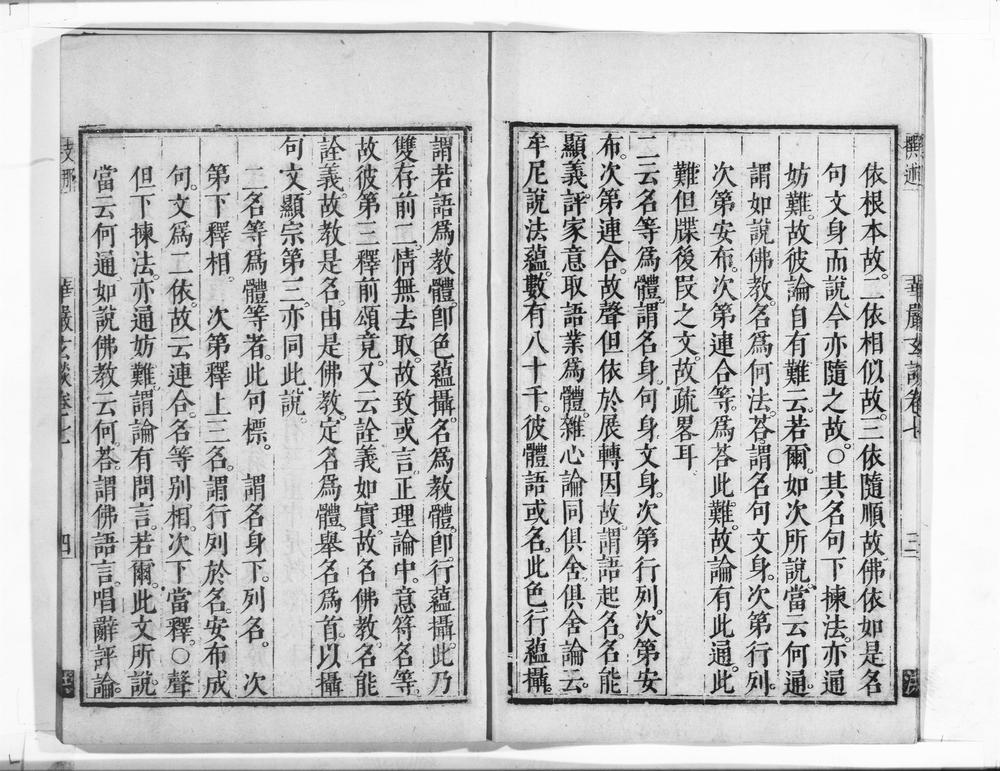 撰述
華嚴玄談卷七
三
依根本故。二依相似故。三依隨順故佛依如是名
句文身而說今亦隨之故。○其名句下揀法。亦通
妨難。故彼論自有難云。若爾。如次所說。當云何通
謂如說佛教。名為何法。荅。謂名句文身。次第行列。
次第安布。次第連合等。為荅此難。故論有此通。此
難但牒後段之文。故疏畧耳
二云名等為體。謂名身。句身文身。次第行列。次第安
布。次第連合。故聲但依於展轉因故。謂語起名。名能
顯義評家意取語業為體。雜心論同俱舍。俱舍論云。
牟尼說法蘊。數有八十千。彼體語或名。此色行蘊攝。
謂若語為教體。卽色蘊攝。名為教體。卽行蘊攝。此乃
雙存前二。情無去取。故致或言。正理論中。意符名等。
故彼第三釋前頌竟。又云詮義如實。故名佛教。名能
詮義。故教是名。由是佛教。定名為體。舉名為首。以攝
句文顯宗第三。亦同此說。
二名等為體等者。此句標。 謂名身下。列名。 次
第下釋相。 次第釋上三名。謂行列於名。安布成
句。文為二依。故云連合。名等別相。次下當釋。○聲
但下揀法。亦通妨難。謂論有問言。若爾。此文所說。
當云何通。如說佛教云何。荅。謂佛語言。唱辭評論。
支那
華嚴玄談卷七
四